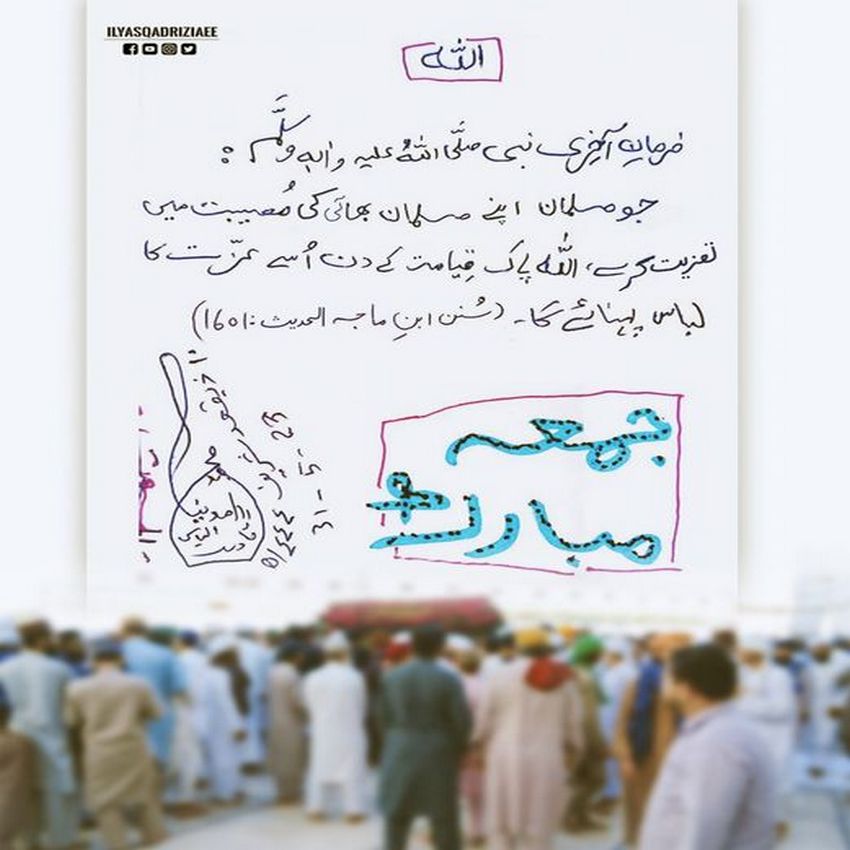 ILYASQADRIZIAEE
اللّٰه
فرمانِ آخری نبی صلَّی اللّٰهُ علیہ واٰلہٖ وسلَّم :
جو مسلمان اپنے مسلمان بھائی کی مُصیبت میں
تعزیت کرے، اللّٰه پاک قِیامت کے دن اُسے عزّت کا
لباس پہنائے گا۔ (سُنن ابنِ ماجہ الحدیث: 1601)
جمعہ
مبارک